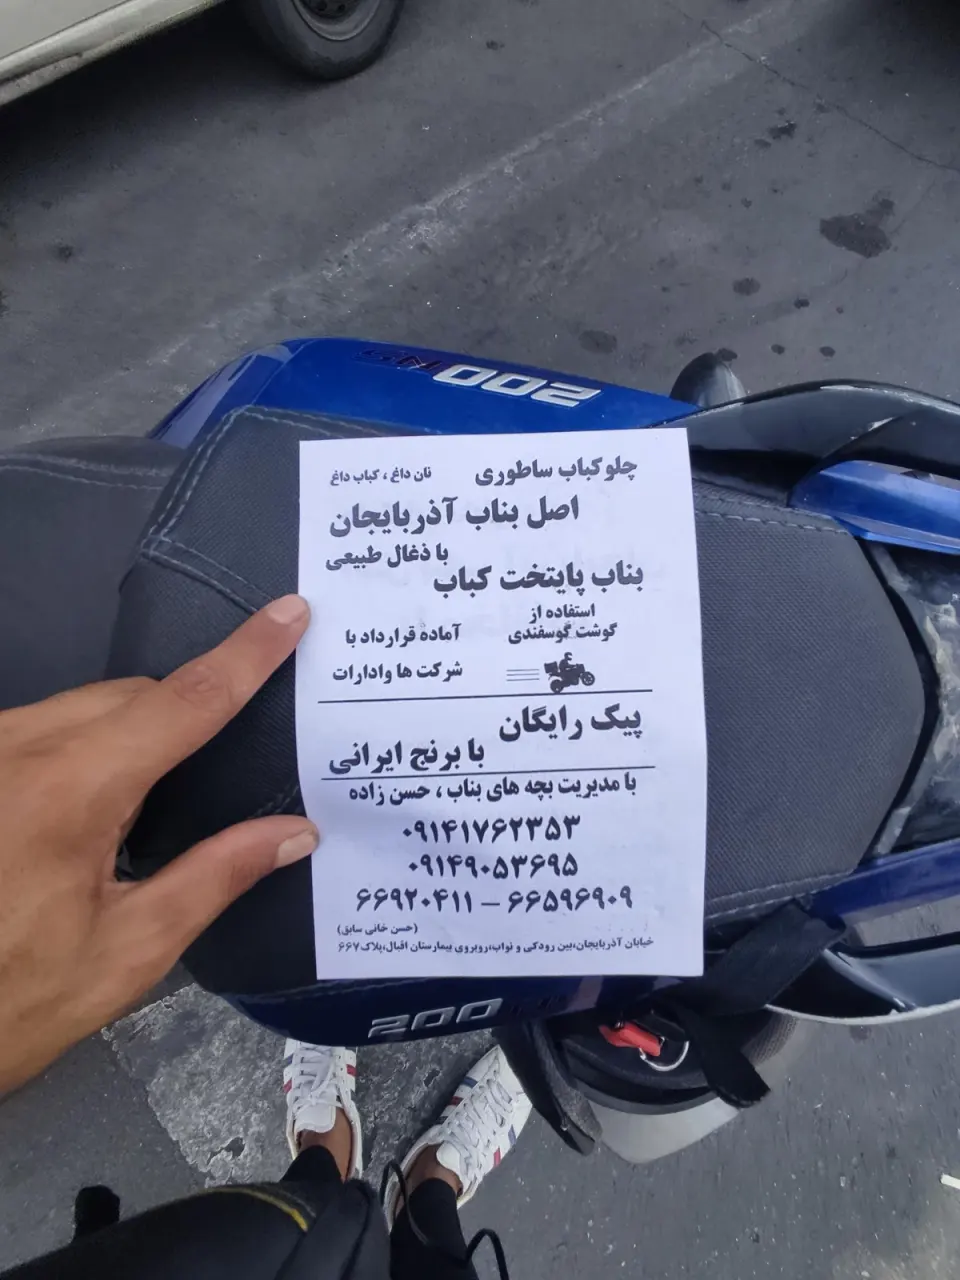 200NS
چلوکباب ساطوری
نان داغ ، کباب داغ
اصل بناب آذربایجان
با ذغال طبیعی
بناب پایتخت کباب
استفاده از
گوشت گوسفندی
آماده قرارداد با
شرکت ها وادارات
پیک رایگان
با برنج ایرانی
با مدیریت بچه های بناب ، حسن زاده
۰۹۱۴۱۷۶۲۳۵۳
۰۹۱۴۹۰۵۳۶۹۵
۶۶۹۲۰۴۱۱ – ۶۶۵۹۶۹۰۹
(حسن خانی سابق)
خیابان آذربایجان،بین رودکی و نواب،روبروی بیمارستان اقبال،پلاک۶۶۷
200